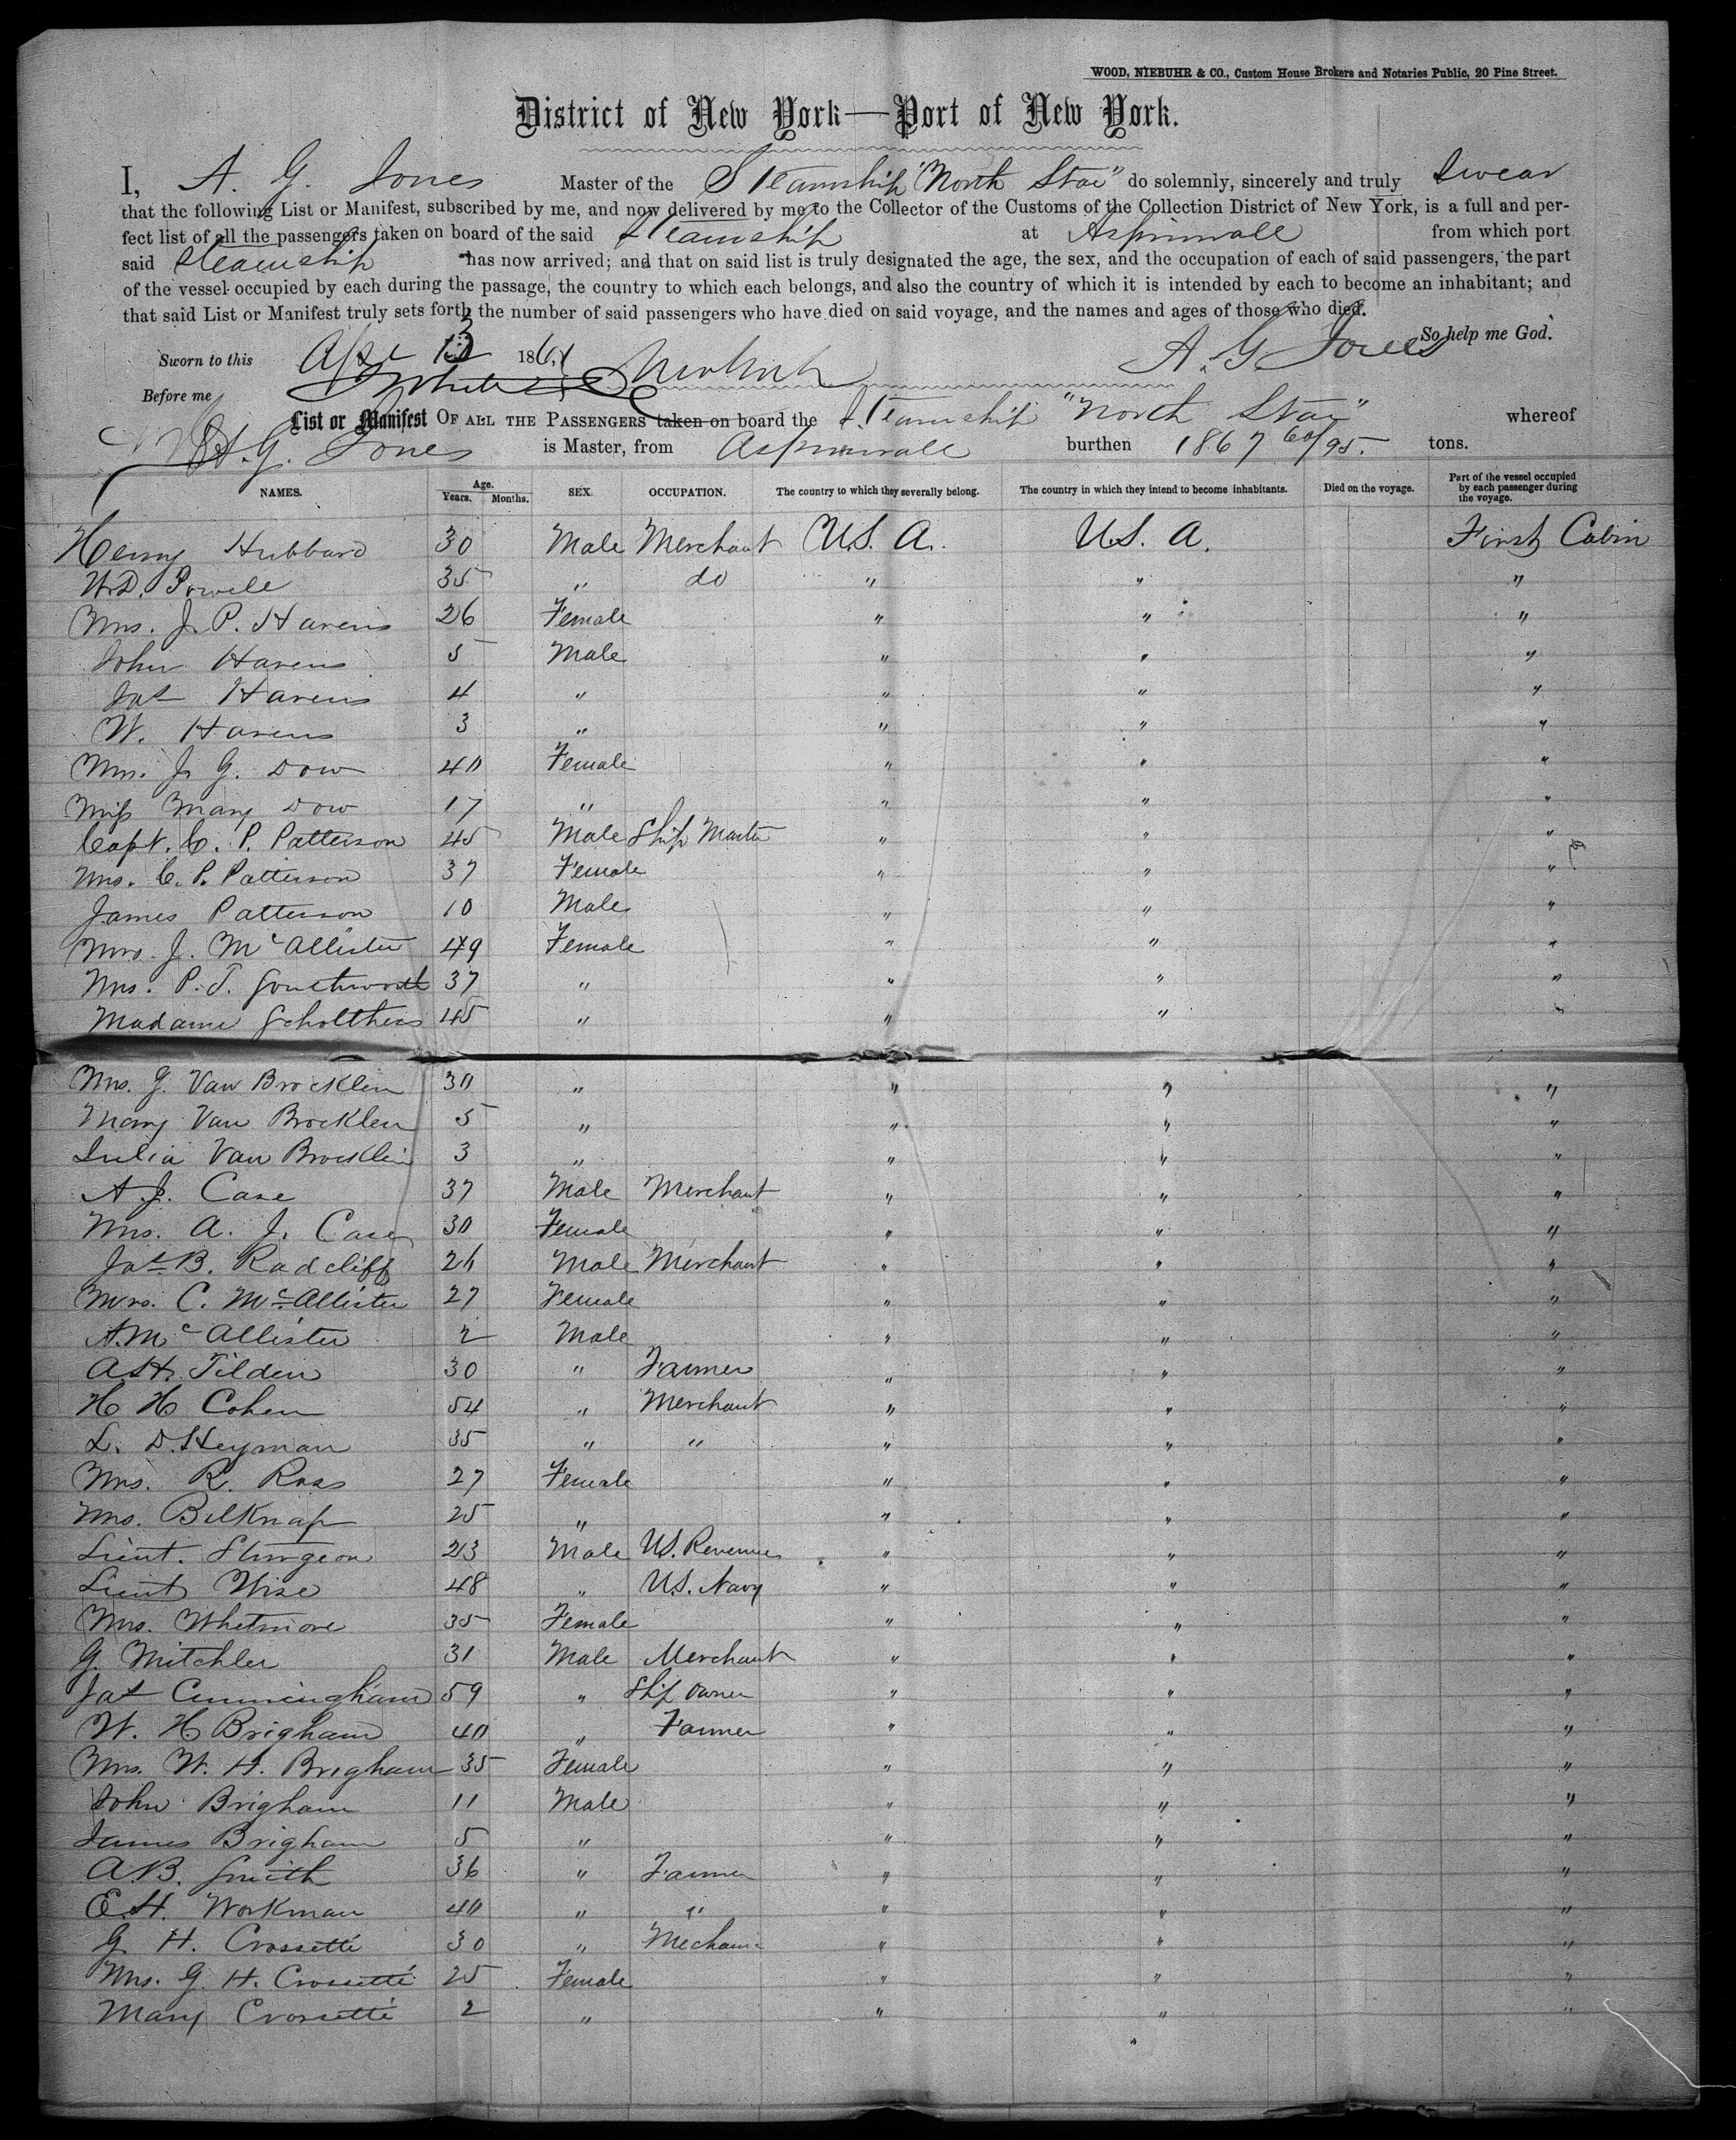 WOOD, NIEBUHR & CO., Custom House Brokers and Notaries Public, 20 Pine Street.
District of New York—Port of New York.
I, A. G. Jones Master of the Steamship "North Star" do solemnly, sincerely and truly swear
that the following List or Manifest, subscribed by me, and now delivered by me to the Collector of the Customs of the Collection District of New York, is a full and per-
fect list of all the passengers taken on board of the said Steamship at Aspinwall from which port
said Steamship has now arrived; and that on said list is truly designated the age, the sex, and the occupation of each of said passengers, the part
of the vessel occupied by each during the passage, the country to which each belongs, and also the country of which it is intended by each to become an inhabitant; and
that said List or Manifest truly sets forth the number of said passengers who have died on said voyage, and the names and ages of those who died.
So help me God.
Sworn to this Apr 13 1861 A. G. Jones
Before me
List or Manifest OF ALL THE PASSENGERS taken on board the Steamship "North Star" whereof
A. G. Jones is Master, from Aspinwall burthen 1867 60/95 tons.
NAMES. Age. Years. Months. SEX. OCCUPATION. The country to which they severally belong. The country in which they intend to become inhabitants. Died on the voyage. Part of the vessel occupied by each passenger during the voyage.
Henry Hubbard 30 Male Merchant U.S. A. U.S. A. First Cabin
W.D. Powell 35 " do " " "
Mrs. J. P. Havens 26 Female " " "
John Havens 5 Male " " "
Jas Havens 4 " " " "
W. Havens 3 " " " "
Mrs. J. G. Dow 40 Female " " "
Miss Mary Dow 17 " " " "
Capt. C. P. Patterson 45 Male Ship Master " " "
Mrs. C. P. Patterson 37 Female " " "
James Patterson 10 Male " " "
Mrs. J. McAllister 49 Female " " "
Mrs. P. T. Southworth 37 " " " "
Madame Scholthers 45 " " " "
Mrs. G. Van Brocklen 30 " " " "
Mary Van Brocklen 5 " " " "
Julia Van Brocklin 3 " " " "
A. J. Case 37 Male Merchant " " "
Mrs. A. J. Case 30 Female " " "
Jas B. Radcliff 26 Male Merchant " " "
Mrs. C. McAllister 27 Female " " "
A. McAllister 2 Male " " "
A.H. Tilden 30 " Farmer " " "
H H Cohen 54 " Merchant " " "
L. D. Heyman 35 " " " " "
Mrs. R. Ross 27 Female " " "
Mrs. Belknap 25 " " " "
Lieut. Sturgeon 23 Male U.S. Revenue " " "
Lieut Wise 48 " U.S. Navy " " "
Mrs. Whetmore 35 Female " " "
G. Mitchler 31 Male Merchant " " "
Jas Cunningham 59 " Ship Owner " " "
W. H Brigham 40 " Farmer " " "
Mrs. W. H. Brigham 35 Female " " "
John Brigham 11 Male " " "
James Brigham 5 " " " "
A.B. Smith 36 " Farmer " " "
E.H. Workman 40 " " " " "
G. H. Crossette 30 " Mechanic " " "
Mrs. G. H. Crossette 25 Female " " "
Mary Crossette 2 " " " "